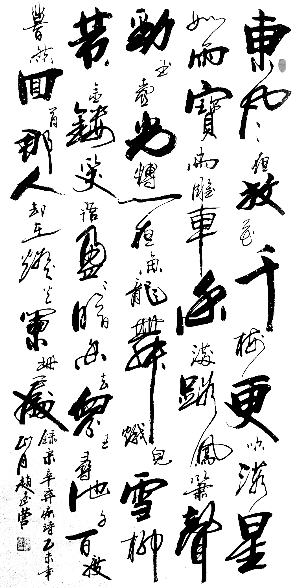 東風夜放花千樹更吹落星
如雨寶馬雕車香滿路鳳簫聲
動玉壺光轉一夜魚龍舞蛾兒雪柳
黃金縷笑語盈盈暗香去眾里尋他千百度
驀然回首那人却在燈火闌珊處
錄宋辛弃疾詞乙未年
正月趙